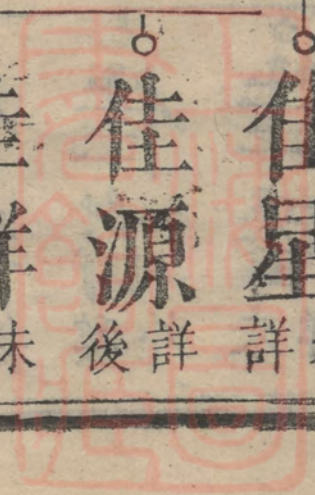 佳星
詳
佳源
詳後
未